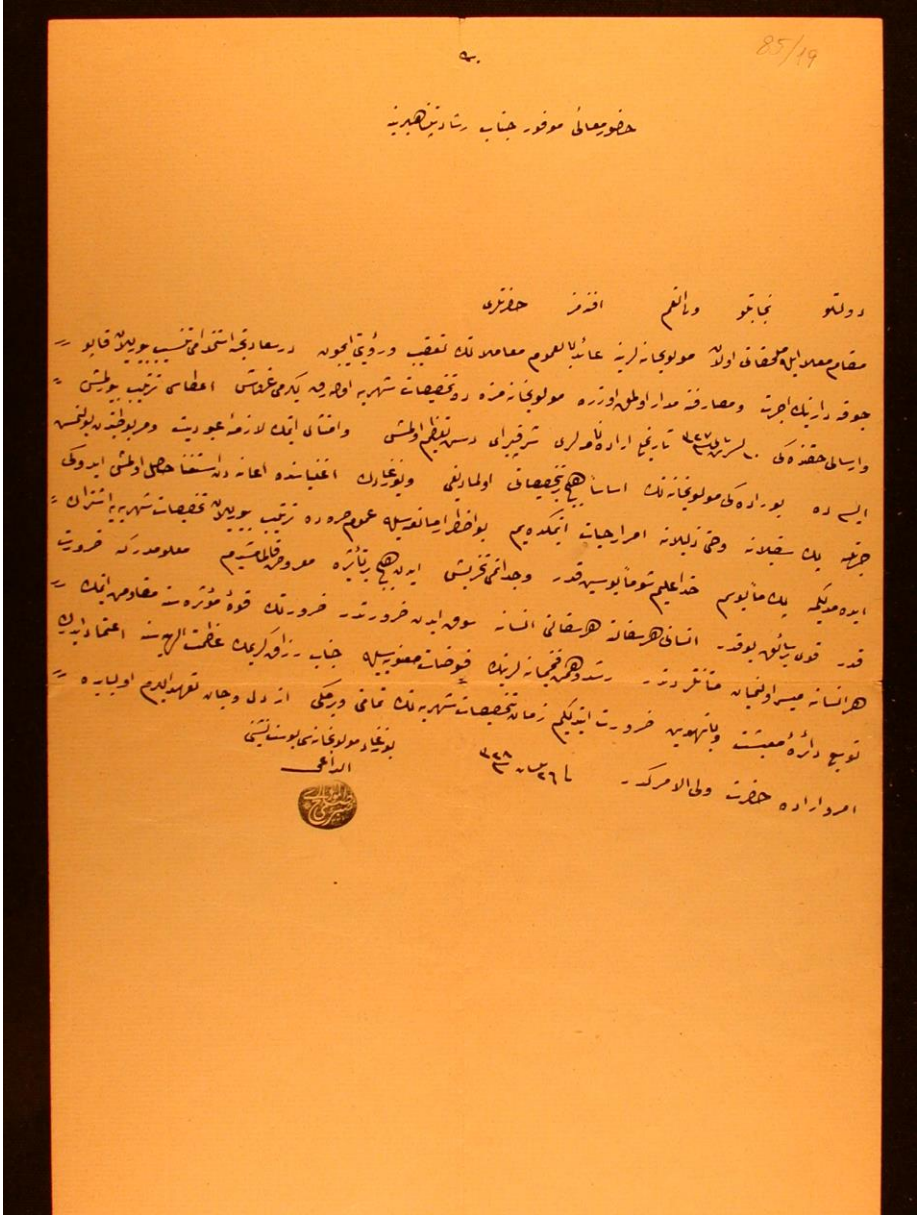 85/19
حضور معالئ موفور جناب رشادتپناهیرینه
دولتلو نجابتلو ولی النعم افندمز حضرتلری
مقام معلا ایله ملحقاتی اولان مولویخانه لرینه عائد بالعموم معاملاتك تعقیب ورؤیتی ایچون درسعادتجه استخدامی تنسیب بیوریلان قاپو
چوقه دارینك اجرت ومصارفنه مدار اولمق اوزره مولویخانه مزه ده تخصیصات شهریه اوله رق یكرمی غروش اعطاسی ترتیب بیورلمش
وارسالی حقنده كی تاریخلی اراده نامه لری شرفپیرای دست تعظیم اولمش وامتثالی ایتمك لازمۀ عبودیت
ایسه ده بوراده كی مولویخانه نك اساساً هیچ بر تخصیصاتی اولمادیغی ویوزغادك اغنیاسنده اعانه دن استغنا حاصل اولمش ایدوكی
جهتله پك سفیلانه وخی ذلیلانه امرار حیات ایتمكده یم بو اضطرار مانعه سیله عموم صره ده ترتیب بیوریلان تخصیصات شهریه یه اشتراك
ایده مدیكمه پك مأیوسم خدا علیم شو مأیوسیت قدر وجدانمی تخریش ایدن هیچ بر تأثره معروض قالمامشدم معلومدركه ضرورت
قدر قوی بر سائق یوقدر انسانی هر سفالته هر سفالتی انسانه سوق ایدن ضرورتدر ضرورتك قوۀ مؤثره سنه مقاومت ایتمك
هر انسانه میسر اولمیان متانتلردندر رشد وهمت فخیمانه لرینك فیوضات معنویه سیله جناب رزاق كریمك عظمت الهیه سنه اعتماد ایدرك
توسیع دائرۀ معیشت ویا تهوین ضرورت ایتدیكم زمان تخصیصات شهریه نك تمامی ویرمكی از دل وجان تعهد ایلرم اولبابده
امر واراده حضرت ولی الامركدر ٢٦ نیسان ٣٢٨
یوزغاد مولویخانه سی پوست نشینی
الداعی